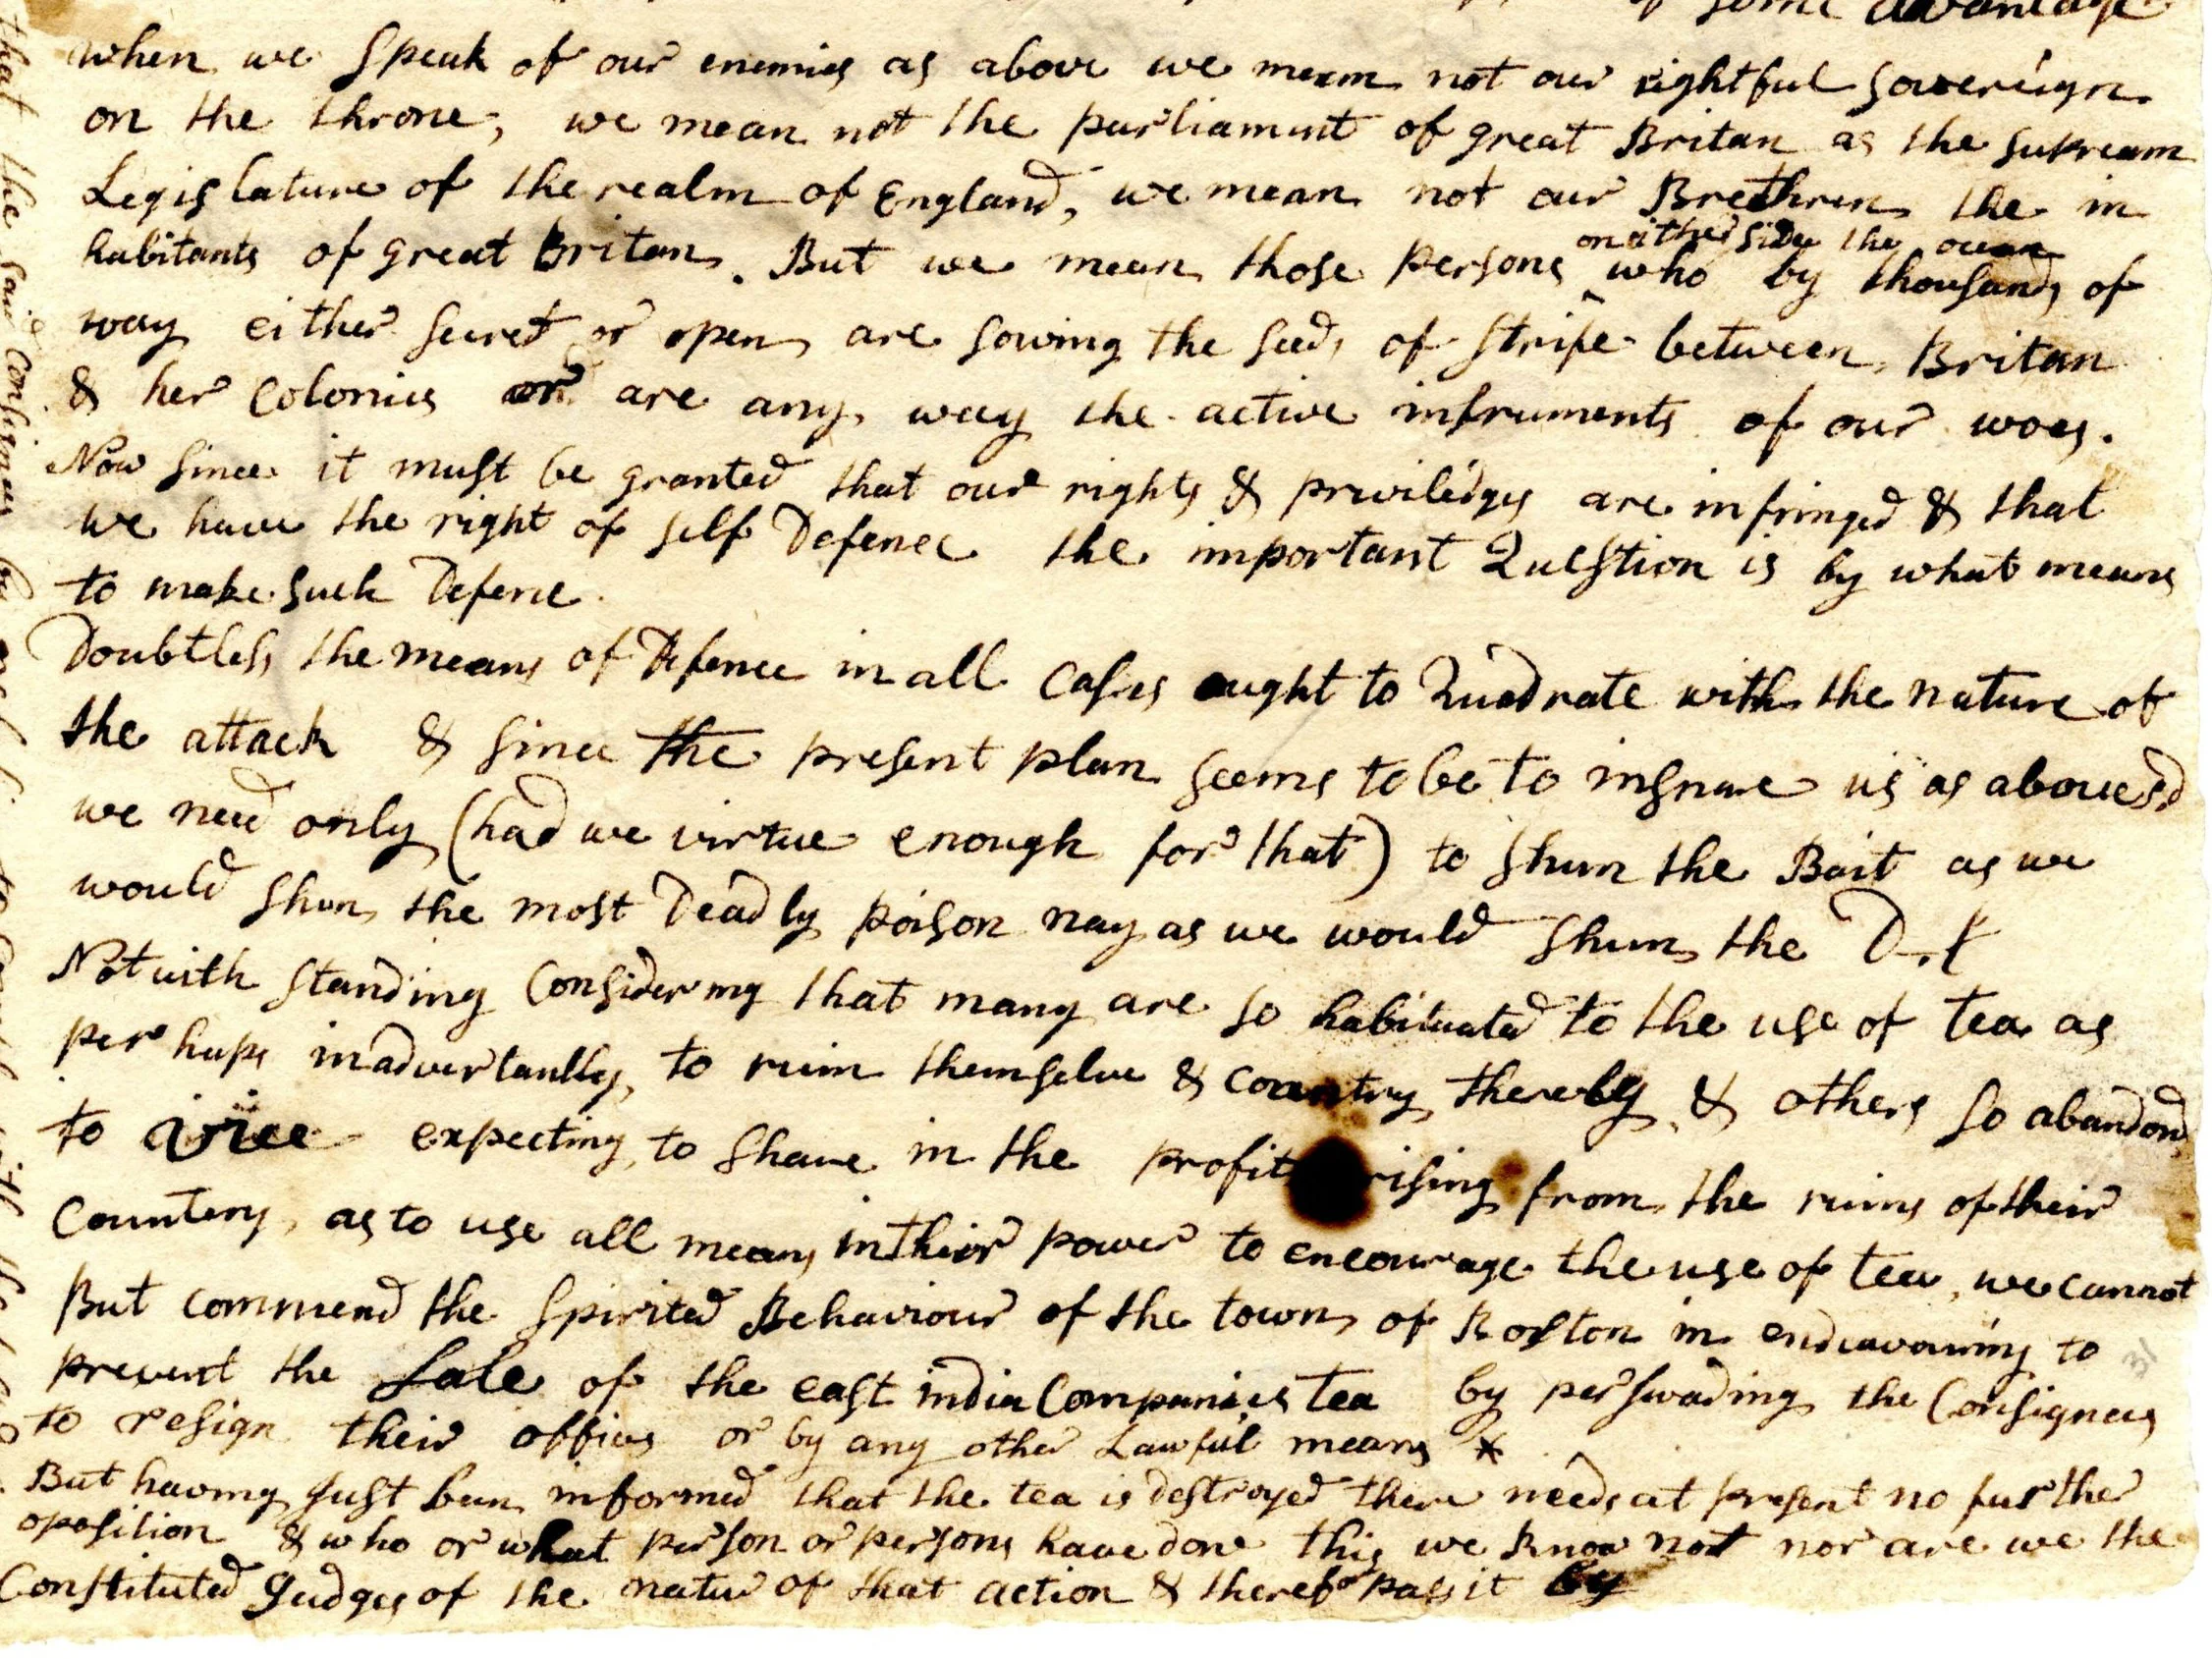 some advantage
when we speak of our enemies as above we mean not our rightful sovereign
on the throne, we mean not the parliament of great Britan as the supream
Legislature of the realm of England, we mean not our Brethren the in
habitants of great Britan. But we mean those persons who by thousands of
on either side the ocean
way either secret or open are sowing the seeds of strife between Britan
& her Colonies or are any way the active instruments of our woes.
Now since it must be granted that our rights & priviledges are infringed & that
we have the right of self Defence the important Question is by what means
to make such Defence.
Doubtless the means of Defence in all Cases ought to Quadrate with the nature of
the attack & since the present plan seems to be to insnare us as abovesd
we need only (had we virtue enough for that) to shun the Bait as we
would shun the most Deadly poison nay as we would shun the D-l
Notwith standing Considering that many are so habituated to the use of tea as
perhaps inadvertantly to ruin themselve & country thereby & others so abandond
to vice expecting to share in the profit rising from the ruins of their
Countery, as to use all means in their power to encourage the use of tea, we cannot
But commend the spirited Behaviour of the town of Boston in endeavouring to
prevent the Sale of the east india Companies tea by perswading the Consignees
to resign their offices or by any other Lawful means *
But having just been informed that the tea is destroyed there needs at present no further
oposition & who or what person or persons have done this we know not nor are we the
Constituted Judges of the natur of that action & therefor pass it by
that the said Consignees
31